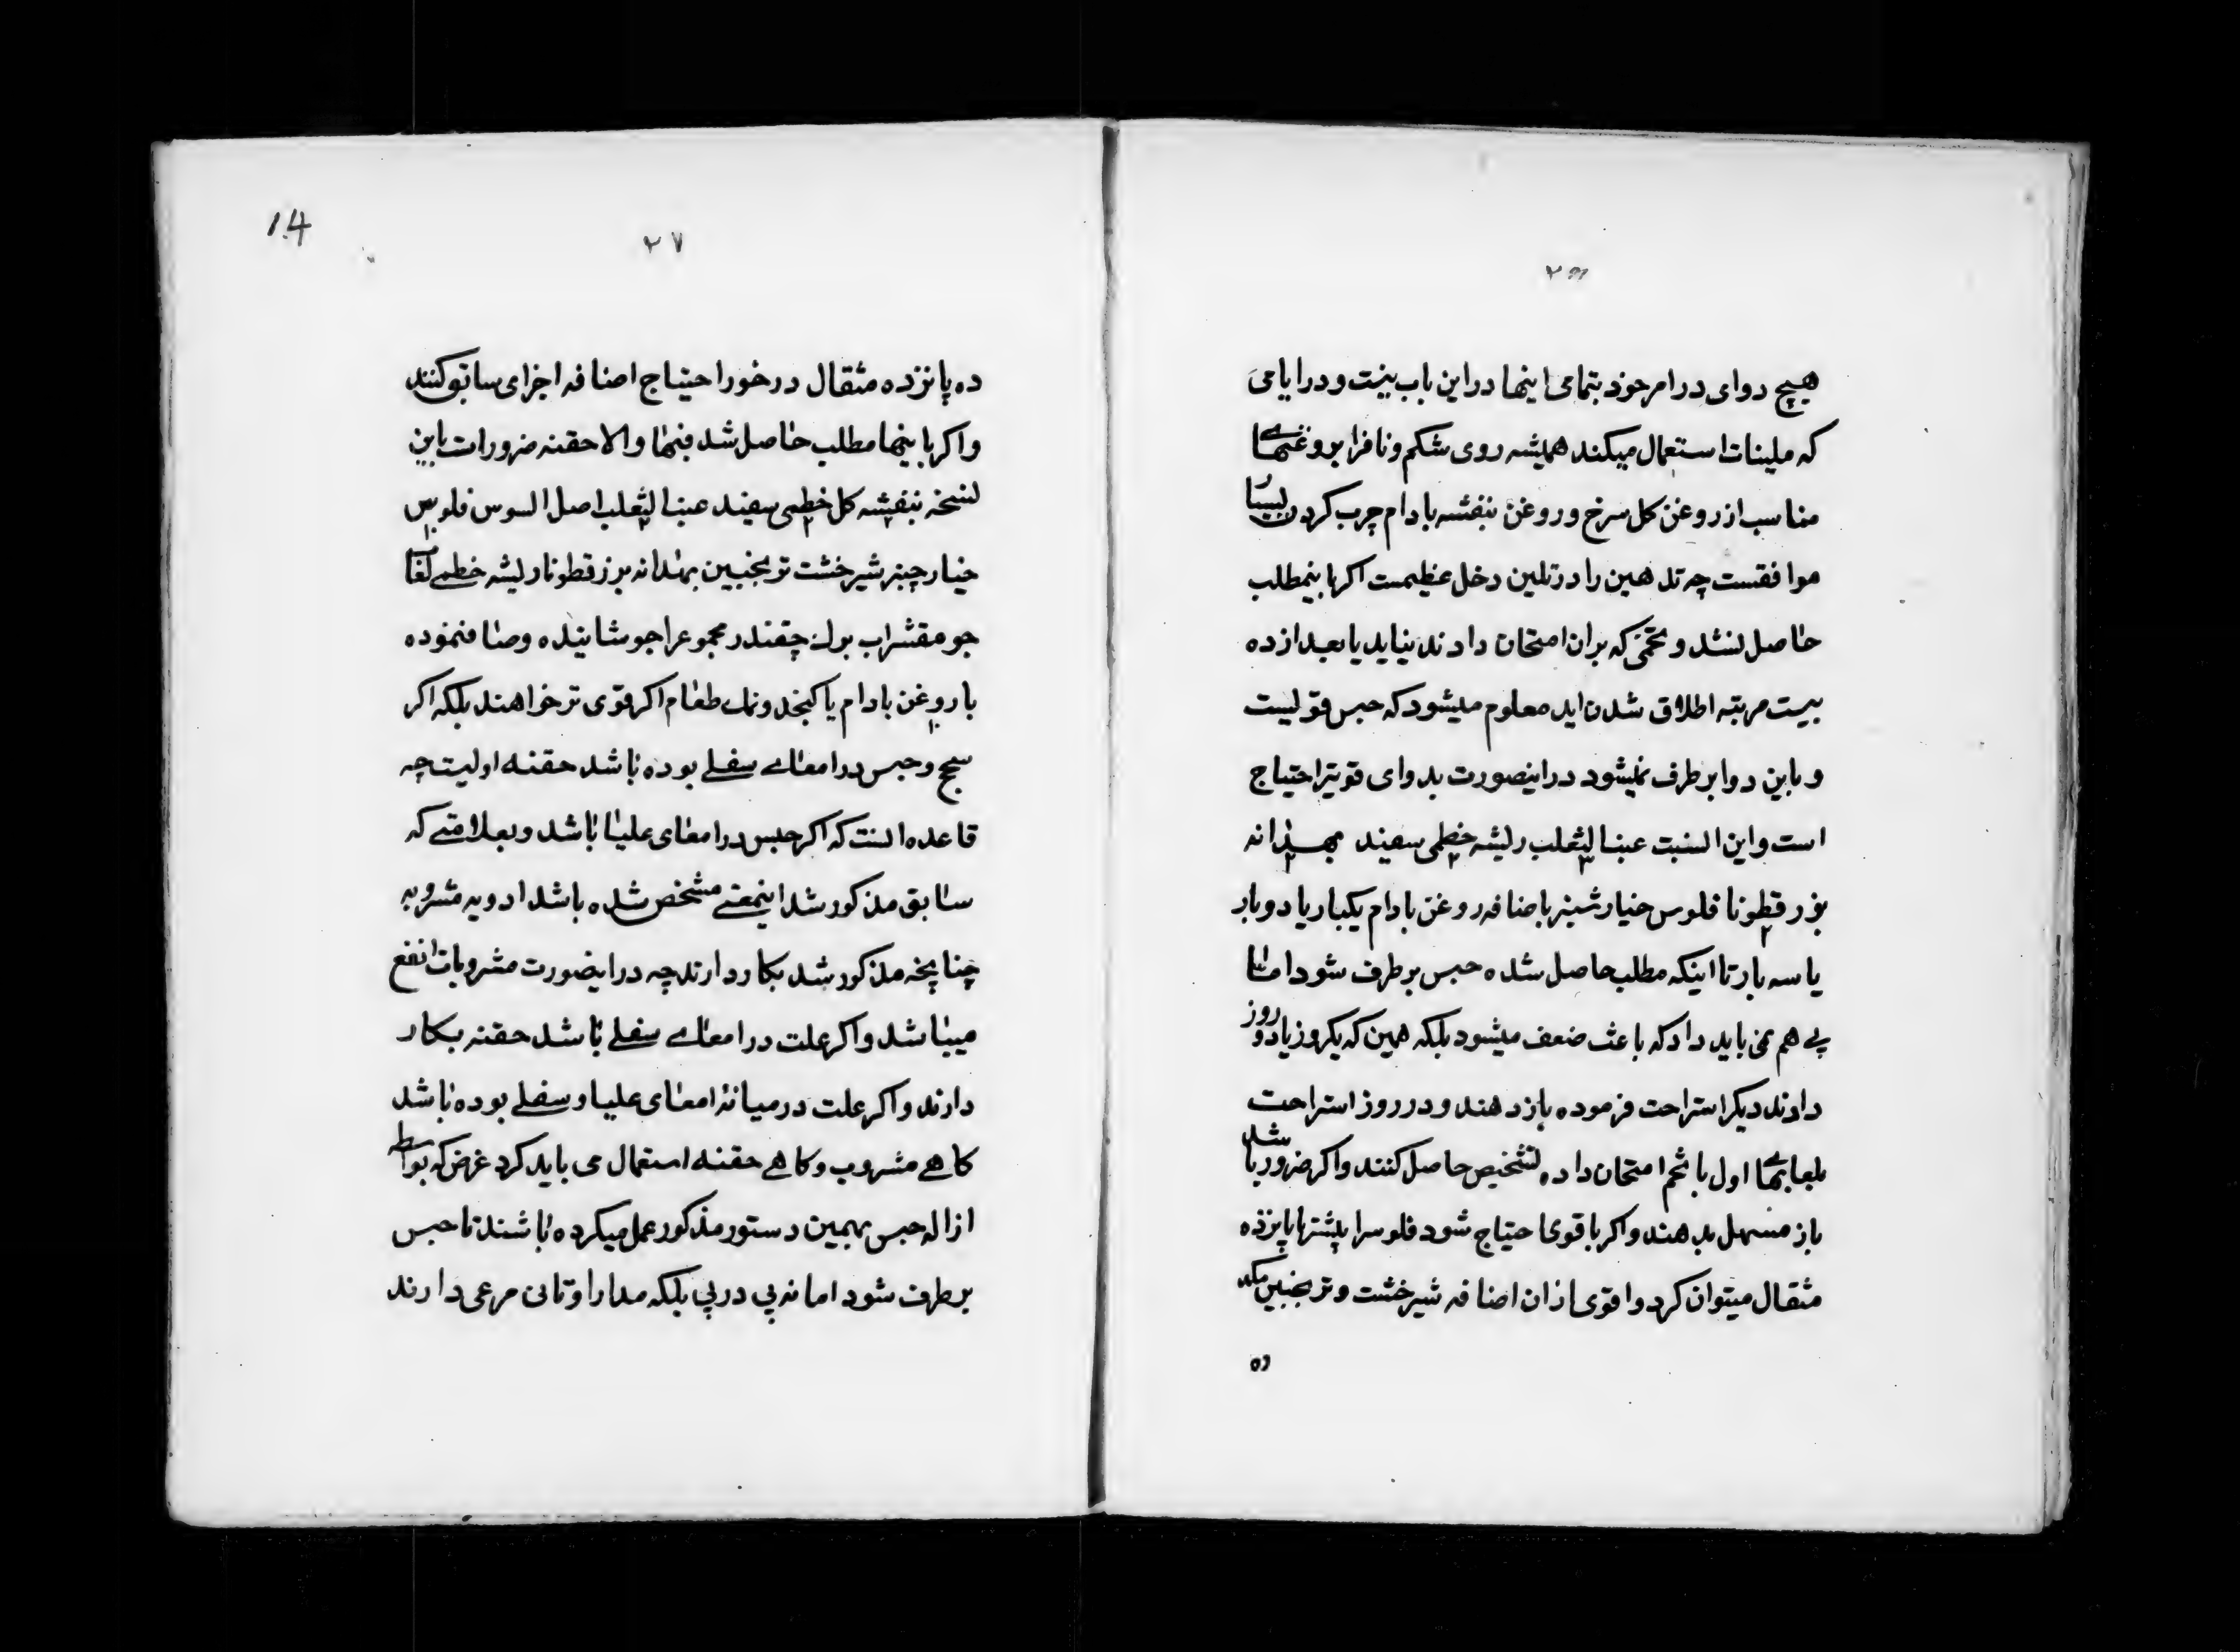 ۲۶
هیچ دوای در امر خود بتمامی اینها در این باب نیست و در ایامی
که ملینات استعمال میکند همیشه روی شکم و ناف را بروغنهای
مناسب از روغن کل سرخ و روغن بنفشه بادام چرب کردن بسیار
موافقست چه تدهین را در تلین دخل عظیمست اکر باینمطلب
حاصل نشد و تخمی که بران امتحان دادند نیاید یا بعد از ده
بیست مرتبه اطلاق شدن اید معلوم میشود که حبس قویست
و باین دوا برطرف نمیشود در اینصورت بدوای قویتر احتیاج
است و این انست عنب الثعلب ریشه خطمی سفید بهدانه
بزر قطونا فلوس خیار شنبر باضافه روغن بادام یکبار یا دوبار
یا سه بار تا اینکه مطلب حاصل شده حبس برطرف شود اما
پی هم نمی باید داد که باعث ضعف میشود بلکه همین که یکروز یا دو روز
دادند دیکر استراحت فرموده باز دهند و در روز استراحت
بلعابهای اول با تخم امتحان داده تشخیص حاصل کنند و اکر ضرور باشد
باز مسهل بدهند و اکر باقوی احتیاج شود فلوس را بیشتر تا پانزده
مثقال میتوان کرد و اقوی از ان اضافه شیرخشت و ترنجبین میکند
ده
14
۲۷
ده پانزده مثقال در خور احتیاج اضافه اجزای سابق کنند
و اکر باینها مطلب حاصل شد فبها والا حقنه ضرور است باین
نسخه بنفشه کل خطمی سفید عنب الثعلب اصل السوس فلوس
خیار چنبر شیرخشت ترنجبین بهدانه بزر قطونا ریشه خطمی
جو مقشر اب برك چقندر مجموع را جوشانیده و صاف نموده
با روغن بادام یا کنجد و نمك طعام اکر قوی تر خواهند بلکه اکر
سحج و حبس در امعاے سفلے بوده باشد حقنه اولیست چه
قاعده انست که اکر حبس در امعای علیا باشد و بعلامتے که
سابق مذکور شد اینمعنے مشخص شده باشد ادویه مشروبه
چنانچه مذکور شد بکار دارند چه در اینصورت مشروبات انفع
میباشد و اکر علت در امعاے سفلے باشد حقنه بکار
دارند و اکر علت در میانهٔ امعای علیا و سفلے بوده باشد
کاهے مشروب و کاهے حقنه استعمال می باید کرد غرض که بواسطه
ازاله حبس بهمین دستور مذکور عمل میکرده باشند تا حبس
برطرف شود اما نه پی در پی بلکه مدارا و تانی مرعی دارند